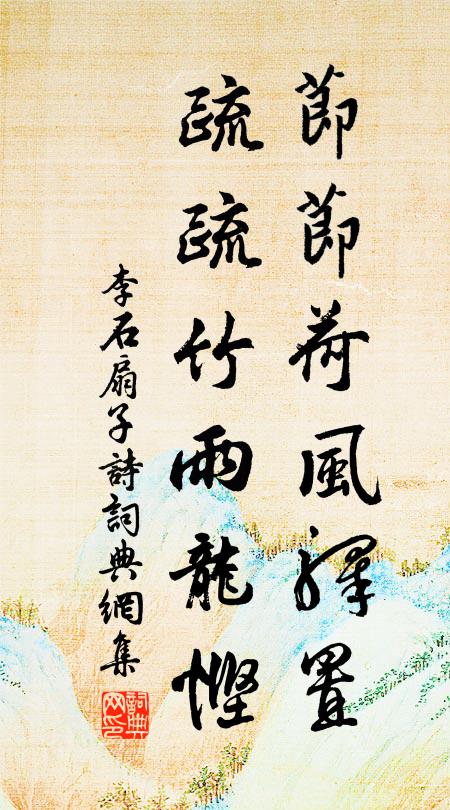 節節荷風驛置
疏疏竹雨龍慳
李石扇子詩詞典網集
詞典网印